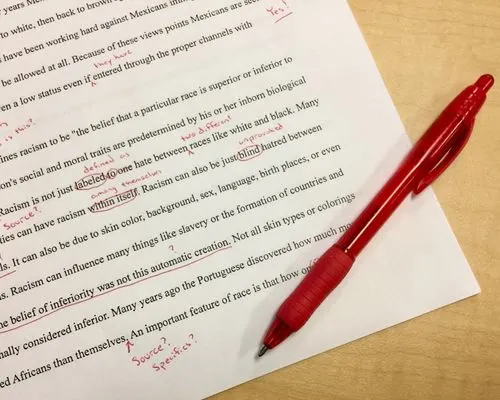 years Mexi
to white, then back to brown
s have been working hard against Mexicans immig
be allowed at all. Because of these views points Mexicans are see
Yes!
they have
en a low status even if entered through the proper channels with
is this?
fines racism to be "the belief that a particular race is superior or inferior to
on's social and moral traits are predetermined by his or her inborn biological
defined as two different unprovoked
Racism is not just labeled to one hate between races like white and black. Many
Source? among themselves
ties can have racism within itself. Racism can also be just blind hatred between
s. It can also be due to skin color, background, sex, language, birth places, or even
s. Racism can influence many things like slavery or the formation of countries and
?
he belief of inferiority was not this automatic creation. Not all skin types or colorings
nally considered inferior. Many years ago the Portuguese discovered how much mo
ed Africans than themselves. An important feature of race is that how
Source?
Specifics?